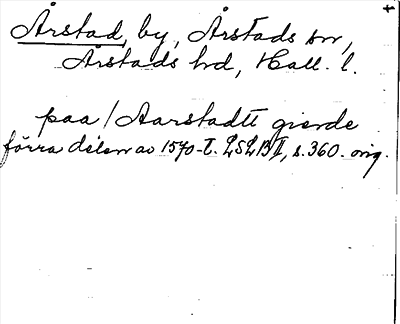 Årstad, by, Årstads sn,
Årstads hd, Hall. l.
paa / Aarstadtt gierde
förra delen av 1570-t. LSLB II, s. 360. orig.